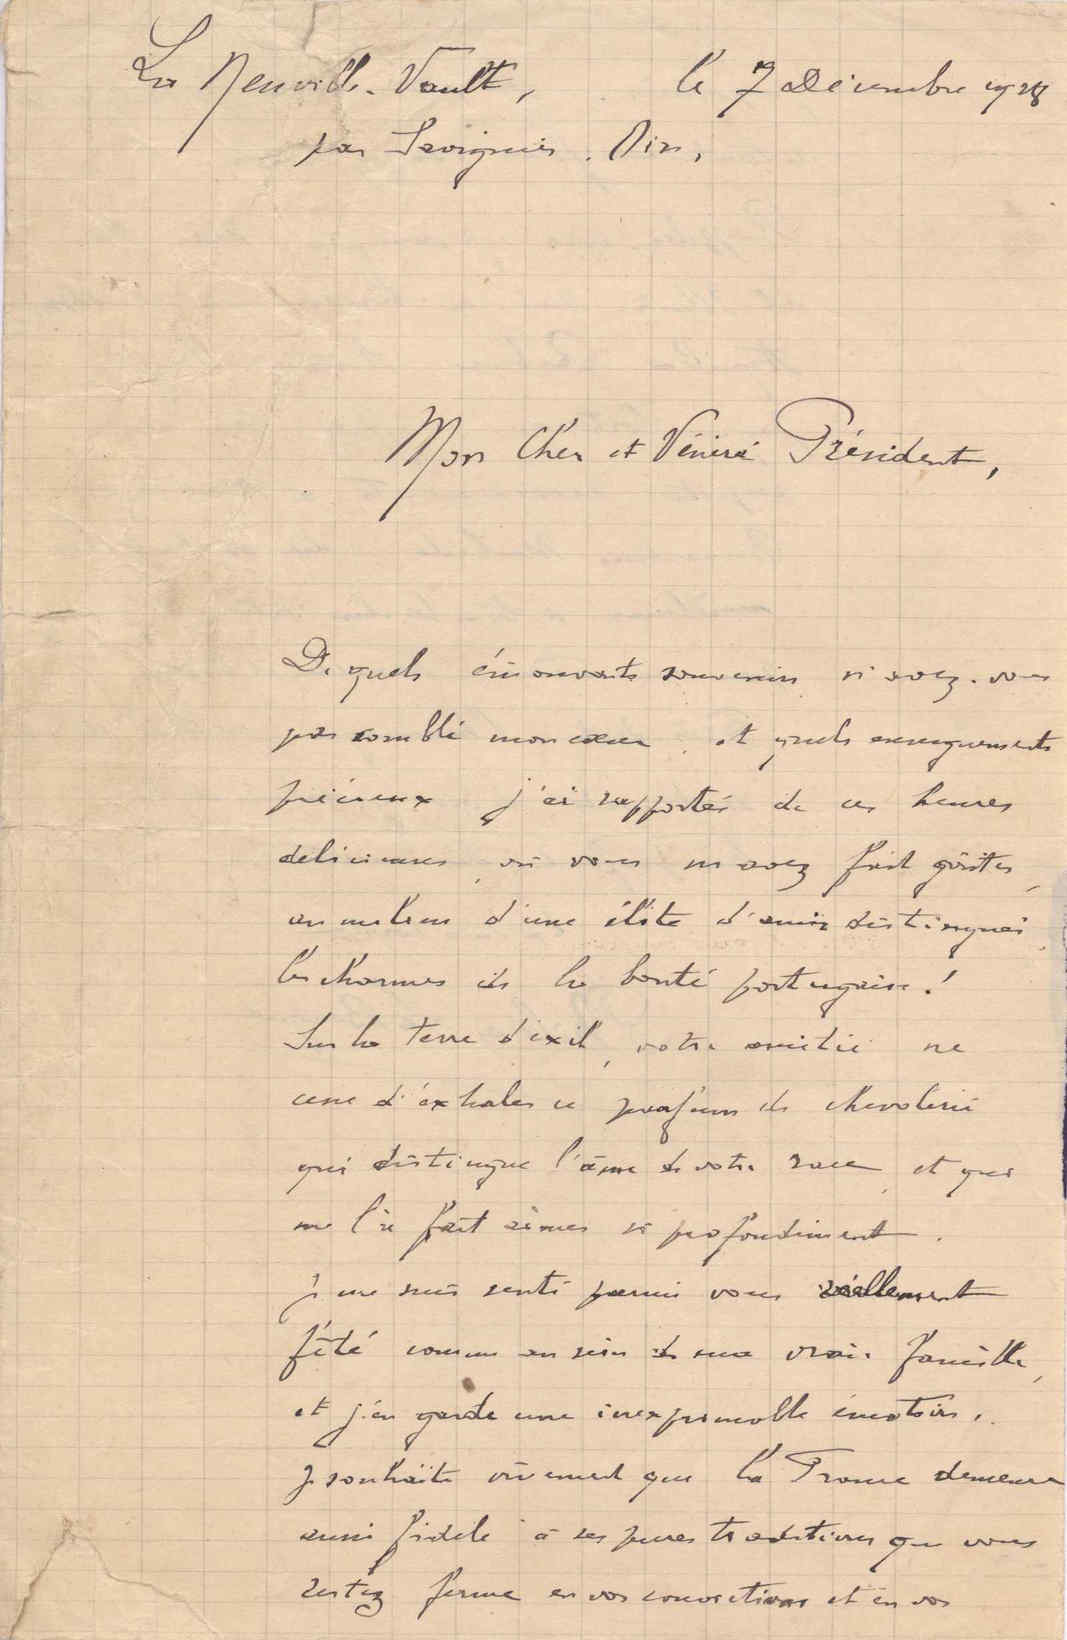 La Neuville-Vault, le 7 Décembre 1928
par Savignies. Oise,
Mon Cher et Vénéré Président,
De quels émouvants souvenirs n'avez-vous
pas comblé mon cœur, et quels enseignements
précieux j'ai rapportés de ces heures
délicieuses, où vous m'avez fait goûter,
au milieu d'une élite d'amis distingués,
les charmes de la bonté portugaise !
Sur la terre d'exil, votre amitié ne
cesse d'exhaler ce parfum de chevalerie
qui distingue l'âme de votre race, et qui
me l'a fait aimer si profondément.
Je me suis senti parmi vous réellement
fêté comme au sein de ma vraie famille,
et j'en garde une inexprimable émotion.
Je souhaite vivement que la France demeure
aussi fidèle à ses pures traditions que vous
restez ferme en vos convictions et en vos